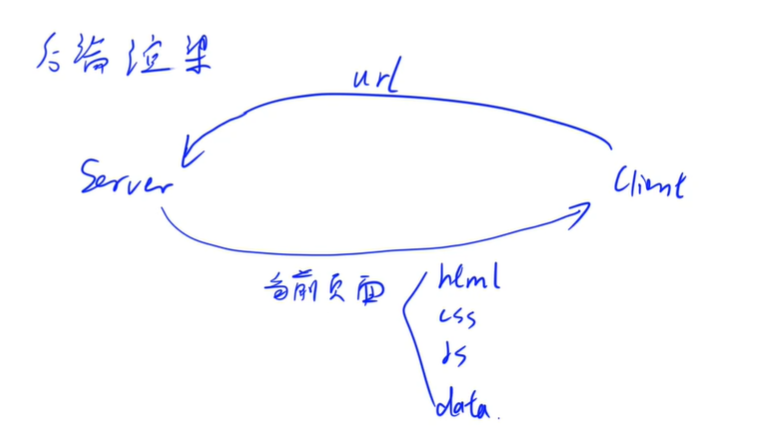 后端渲染
url
Server
Client
当前页面
html
css
js
data.